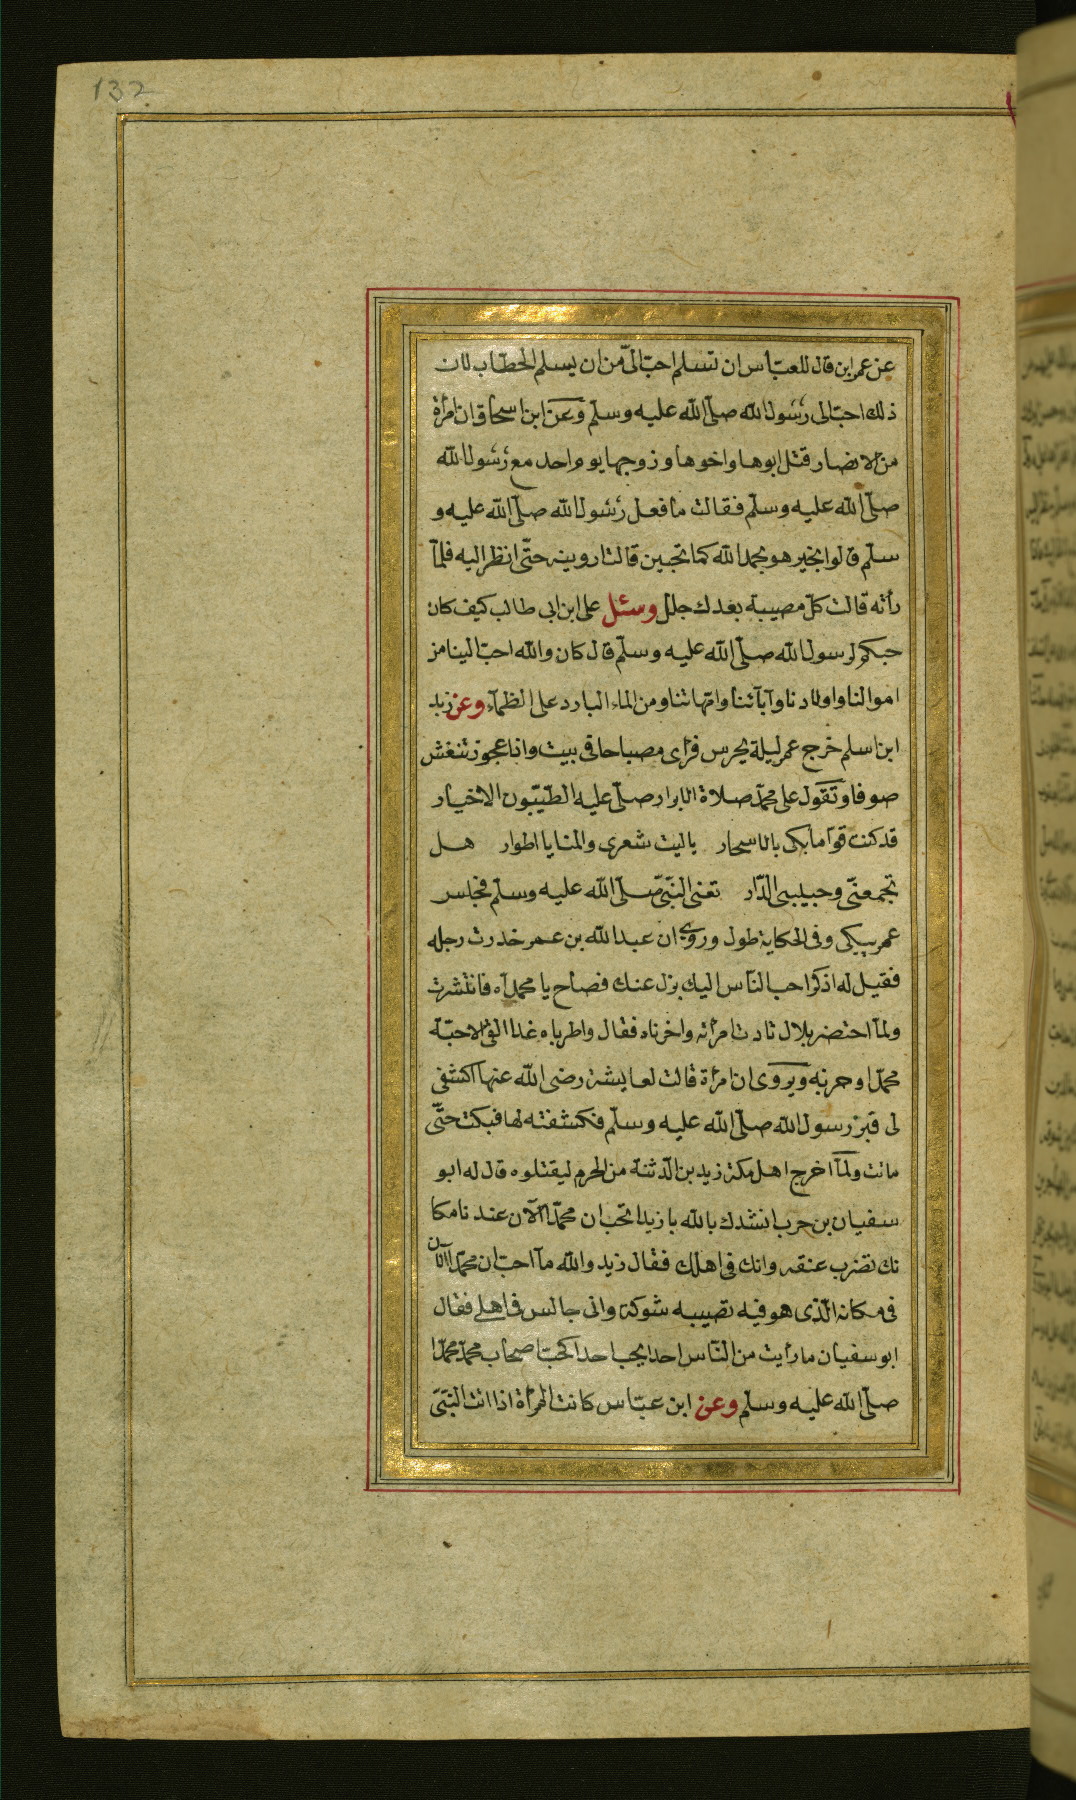 132
عن عمر ابن قال للعبّاس ان تسلم احبّ الىّ من ان يسلم الخطاب لان
ذلك احبّ الى رسول الله صلّى الله عليه وسلّم وعن ابن اسحاق ان امرأة
من الانصار قتل ابوها واخوها وزوجها يوم احد مع رسول الله
صلّى الله عليه وسلّم فقالت ما فعل رسول الله صلّى الله عليه و
سلّم قالوا بخير هو بحمد الله كما تحبين قالت ارونيه حتّى انظر اليه فلمّا
رأته قالت كلّ مصيبة بعدك جلل وسئل على ابن ابى طالب كيف كان
حبكم لرسول الله صلّى الله عليه وسلّم قال كان والله احبّ الينا من
اموالنا واولادنا وآبائنا وامّهاتنا ومن الماء البارد على الظمآء وعن زيد
ابن اسلم خرج عمر ليلة يحرس فرأى مصباحا فى بيت واذا عجوز تنفش
صوفا وتقول على محمّد صلاة الابرار صلّى عليه الطيّبون الاخيار
قد كنت قوّاما بكى بالاسحار ياليت شعرى والمنايا اطوار هل
تجمعنّى وحبيبى الدّار تعنى النّبىّ صلّى الله عليه وسلّم فجلس
عمر يبكى وفى الحكاية طول وروى ان عبد الله بن عمر خدرت رجله
فقيل له اذكر احب النّاس اليك يزل عنك فصاح يا محمدآه فانتشرت
ولمّا احتضر بلال نادت امرأته واحزناه فقال واطرباه غدا القى الاحبّه
محمّدا وحزبه ويروى ان امرأة قالت لعايشة رضى الله عنها اكشفى
لى قبر رسول الله صلّى الله عليه وسلّم فكشفته لها فبكت حتّى
ماتت ولمّا اخرج اهل مكة زيد بن الدثنة من الحرم ليقتلوه قال له ابو
سفيان بن حرب انشدك بالله يا زيد اتحب ان محمّدا الآن عندنا مكا
نك نضرب عنقه وانك فى اهلك فقال زيد والله مآ احبّ ان محمّدا الآن
فى مكانه الّذى هو فيه تصيبه شوكة وانى جالس فى اهلى فقال
ابو سفيان ما رأيت من النّاس احدا يحب احدا كحبّ اصحاب محمّد محمّدا
صلّى الله عليه وسلّم وعن ابن عبّاس كانت المرأة اذا اتت النّبىّ